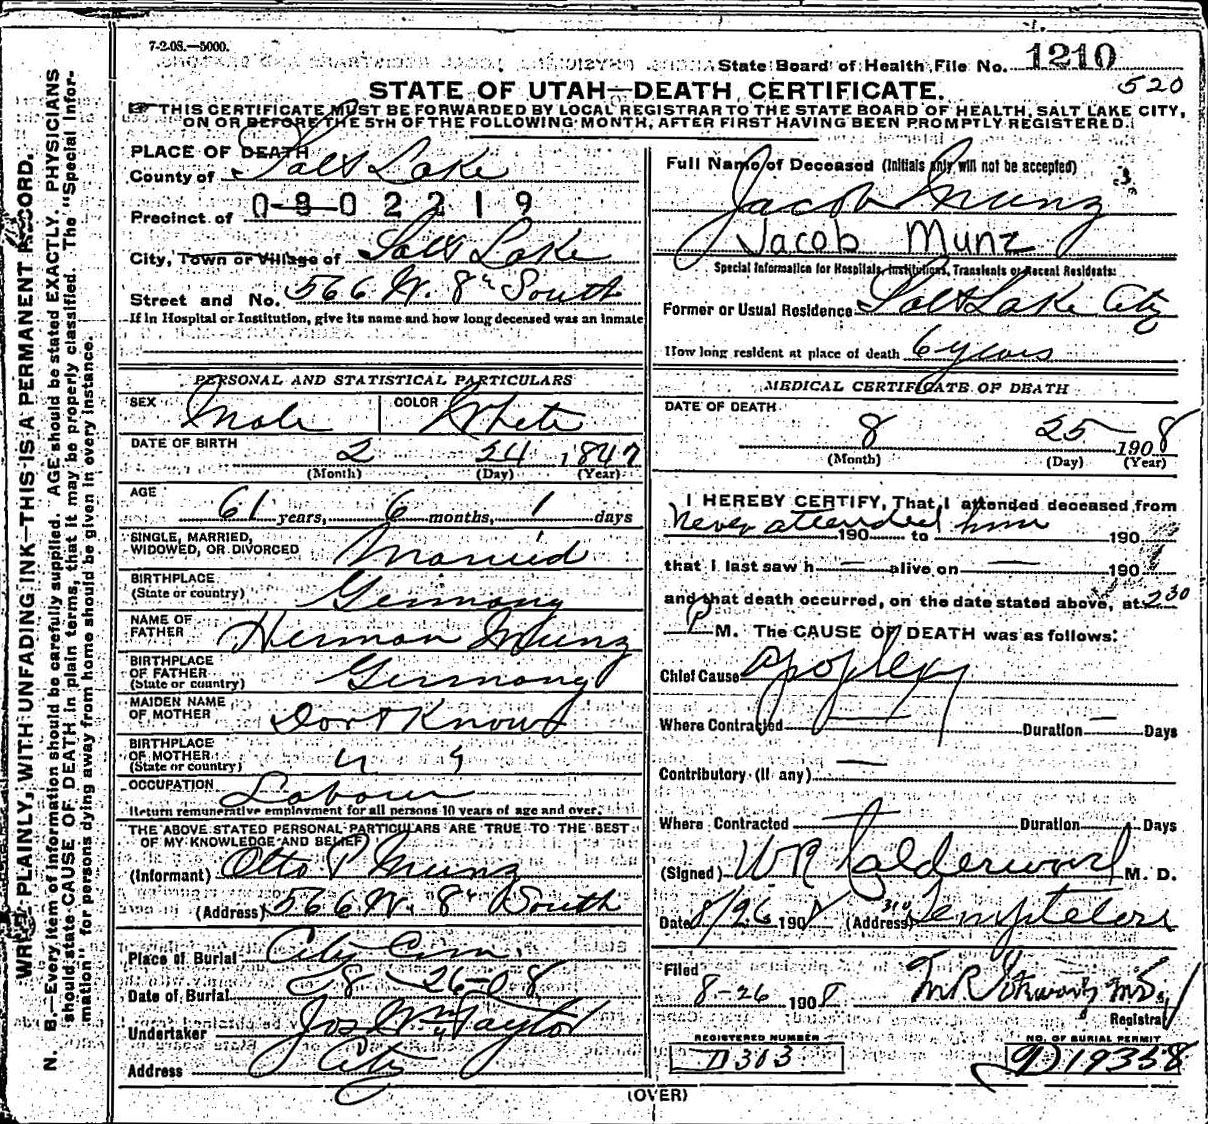 7-2-08.—5000.
State Board of Health File No. 1210
520
STATE OF UTAH—DEATH CERTIFICATE.
THIS CERTIFICATE MUST BE FORWARDED BY LOCAL REGISTRAR TO THE STATE BOARD OF HEALTH, SALT LAKE CITY,
ON OR BEFORE THE 5TH OF THE FOLLOWING MONTH, AFTER FIRST HAVING BEEN PROMPTLY REGISTERED.
WRITE PLAINLY, WITH UNFADING INK—THIS IS A PERMANENT RECORD.
N. B.—Every item of information should be carefully supplied. AGE should be stated EXACTLY. PHYSICIANS
should state CAUSE OF DEATH in plain terms, that it may be properly classified. The "Special Infor-
mation" for persons dying away from home should be given in every instance.
PLACE OF DEATH
County of Salt Lake
Precinct of 0302219
City, Town or Village of Salt Lake
Street and No. 566 W. 8th South
If in Hospital or Institution, give its name and how long deceased was an inmate
PERSONAL AND STATISTICAL PARTICULARS
SEX Male COLOR White
DATE OF BIRTH 2 24 1847
(Month) (Day) (Year)
AGE 61 years, 6 months, 1 days
SINGLE, MARRIED,
WIDOWED, OR DIVORCED Married
BIRTHPLACE
(State or country) Germany
NAME OF
FATHER Herman Munz
BIRTHPLACE
OF FATHER
(State or country) Germany
MAIDEN NAME
OF MOTHER Dont Know
BIRTHPLACE
OF MOTHER
(State or country) " "
OCCUPATION Labour
Return remunerative employment for all persons 10 years of age and over.
THE ABOVE STATED PERSONAL PARTICULARS ARE TRUE TO THE BEST
OF MY KNOWLEDGE AND BELIEF
(Informant) Otto P Munz
(Address) 566 W. 8th South
Place of Burial City Cem.
Date of Burial 8-26-08
Undertaker Jos Wm Taylor
Address City
Full Name of Deceased (Initials only will not be accepted)
Jacob Munz
Jacob Munz
Special Information for Hospitals, Institutions, Transients or Recent Residents:
Former or Usual Residence Salt Lake City
How long resident at place of death 6 years
MEDICAL CERTIFICATE OF DEATH
DATE OF DEATH
8 25 1908
(Month) (Day) (Year)
I HEREBY CERTIFY, That I attended deceased from
Never attended him
190 to 190
that I last saw h — alive on — 190
and that death occurred, on the date stated above, at 2 30
P M. The CAUSE OF DEATH was as follows:
Chief Cause Apoplexy
Where Contracted — Duration — Days
Contributory (If any) —
Where Contracted — Duration Days
(Signed) W R Calderwood M. D.
Date 8/26 1908 (Address) 310 Templeton
Filed
8-26 1908
Registrar
REGISTERED NUMBER
D 303
NO. OF BURIAL PERMIT
D 19358
(OVER)